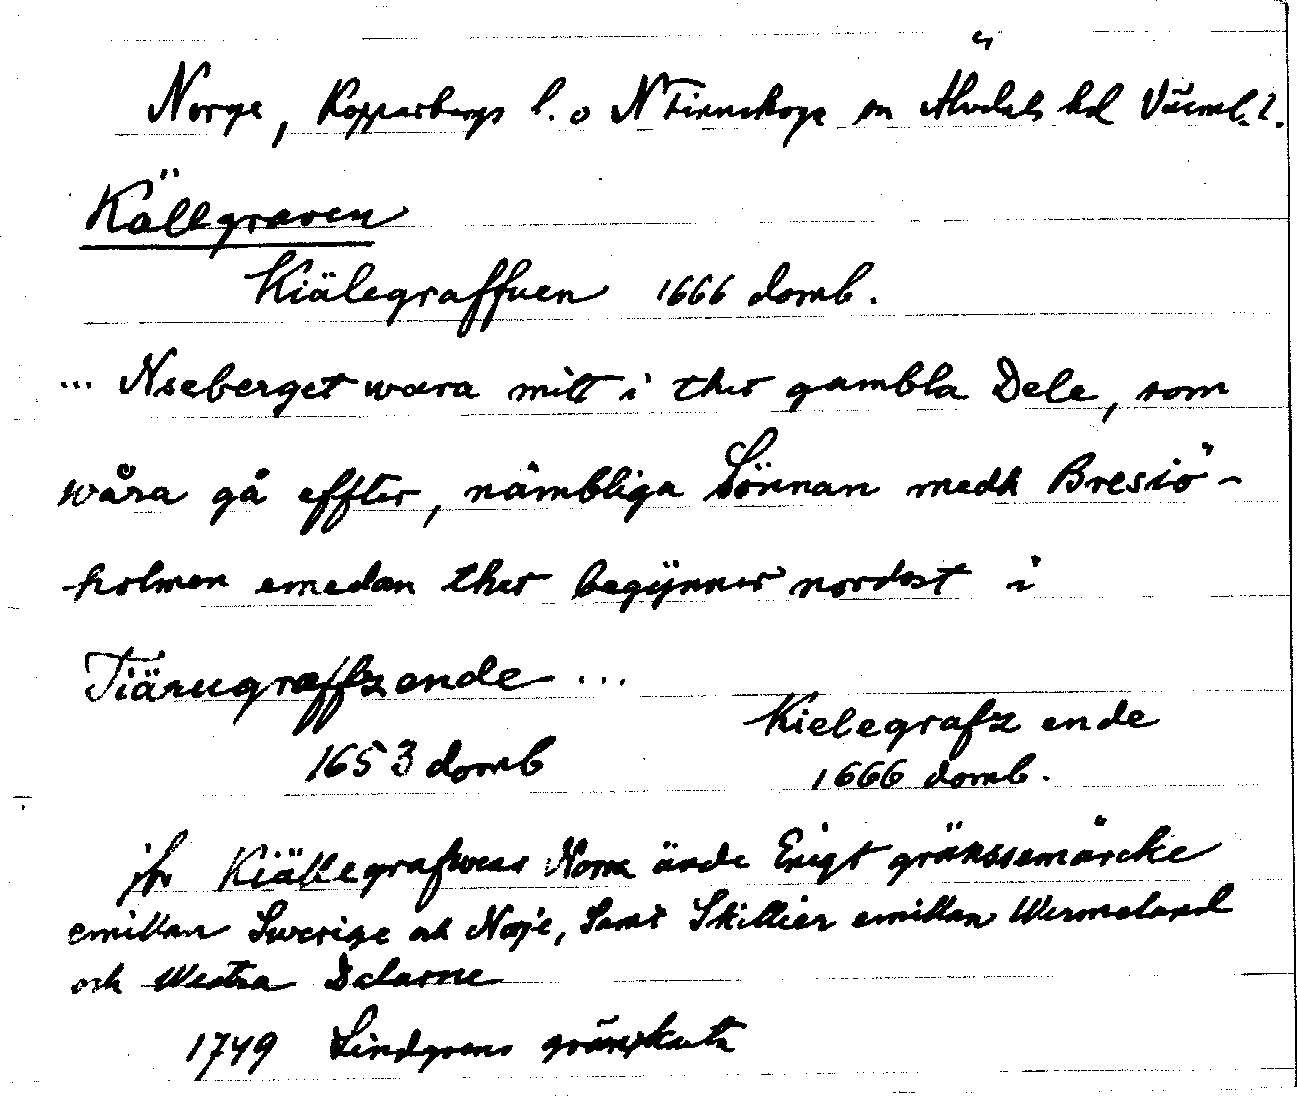 Norge, Kopparbergs l. o N Finnskoga sn Älvdals hd Värml. l.
Källgraven
Kiälegraffuen 1666 domb.
... Nseberget wara mitt i ther gambla Dele, som
wåra gå effter, nämbliga Lönnan medh Bresiö-
holmen emedan ther begÿnner nordost i
Tiärugraffz ende ...
1653 domb
Kielegrafz ende
1666 domb.
jfr Kiällegrafwens Norra ände Enigt gränssemärcke
emillan Swerige och Norje, Samt Skillier emillan Wermeland
och Westra Dalarne
1749 Lindgrens gränskarta